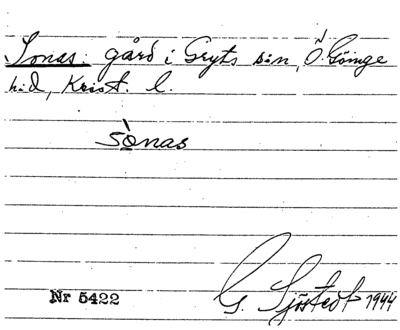 Sonas. gård i Gryts sn, Ö. Göinge
hd, Krist. l.
sò̱nas
Nr 5422
G. Sjöstedt 1944